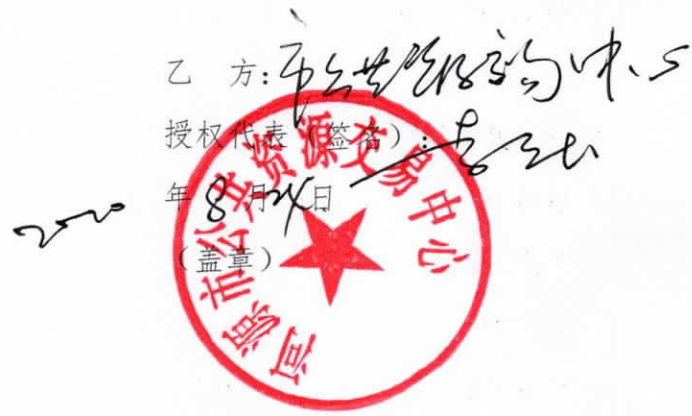 乙 方:市公共资源交易中心
授权代表（签名）:
2020年8月24日
（盖章）
河源市公共资源交易中心